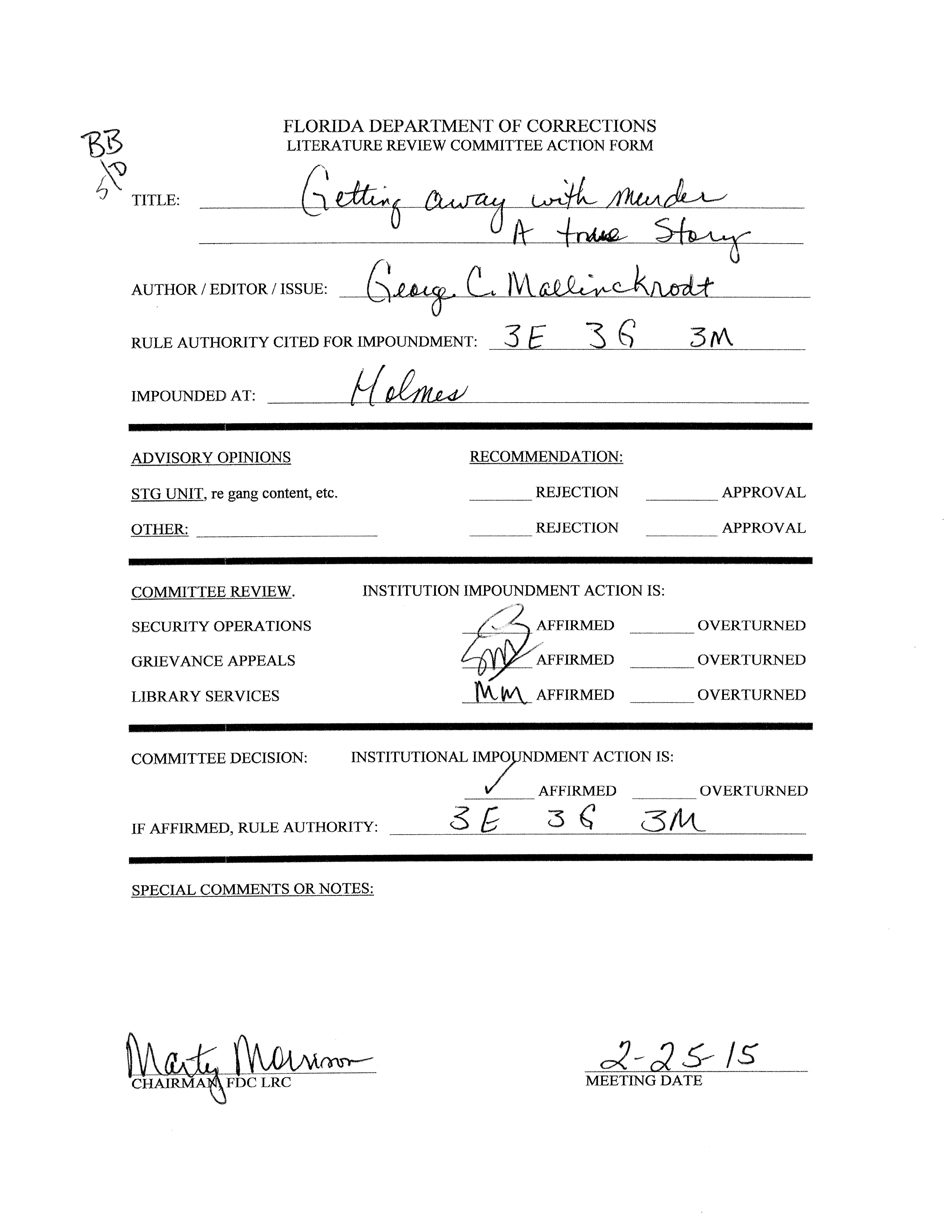 FLORIDA DEPARTMENT OF CORRECTIONS
LITERATURE REVIEW COMMITTEE ACTION FORM
BB
TITLE: Getting away with murder
A true Story
AUTHOR / EDITOR / ISSUE: George C. Mallinckrodt
RULE AUTHORITY CITED FOR IMPOUNDMENT: 3E 3G 3M
IMPOUNDED AT: Holmes
ADVISORY OPINIONS RECOMMENDATION:
STG UNIT, re gang content, etc. REJECTION APPROVAL
OTHER: REJECTION APPROVAL
COMMITTEE REVIEW. INSTITUTION IMPOUNDMENT ACTION IS:
SECURITY OPERATIONS AFFIRMED OVERTURNED
GRIEVANCE APPEALS AFFIRMED OVERTURNED
LIBRARY SERVICES MM AFFIRMED OVERTURNED
COMMITTEE DECISION: INSTITUTIONAL IMPOUNDMENT ACTION IS:
✓ AFFIRMED OVERTURNED
IF AFFIRMED, RULE AUTHORITY: 3E 3G 3M
SPECIAL COMMENTS OR NOTES:
Marty Morrison 2-25-15
CHAIRMAN, FDC LRC MEETING DATE